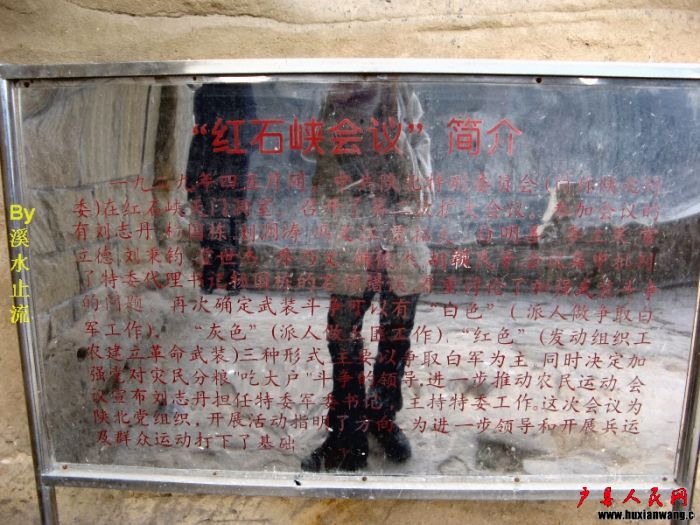 “红石峡会议”简介
一九二九年四五月间，中共陕北特别委员会(
委)在红石峡天门洞窟，召开了第二次扩大会议。参加会议的
有刘志丹、杜国栋、刘澜涛、
立德、刘秉钧、
了特委代理书记杨国栋的右倾错误，
的问题。再次确定武装斗争可以有“白色”(派人做争取白
军工作)，“灰色”(派人做 工作)，“红色”(发动组织工
农建立革命武装)三种形式，主要以争取白军为主，同时决定加
强党对灾民分粮“吃大户”斗争的领导，进一步推动农民运动，会
议宣布刘志丹担任特委军委书记，主持特委工作。这次会议为
陕北党组织，开展活动指明了方向，为进一步领导和开展兵运
及群众运动打下了基础
By溪水止流
户县人民网
www.huxianwang.c